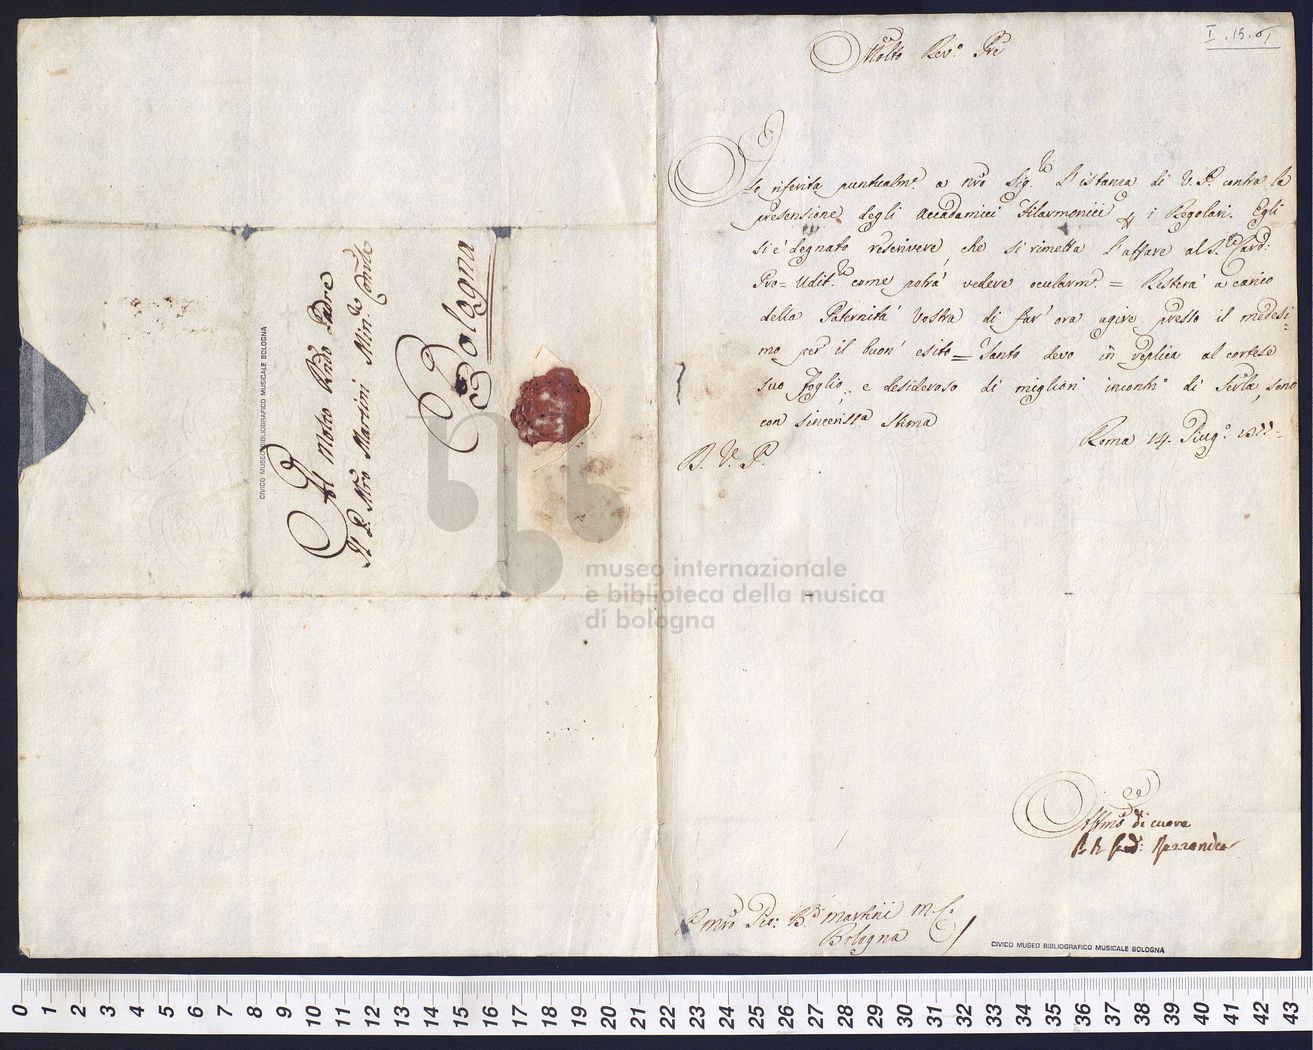 I.19.
Molto Rev.º Pre
Ho riferita puntualm.e a nro Sig.re l'istanza di V. P. contra la
presensione degli Accadamici Filarmonici e i Regolari. Egli
si è degnato rescrivere, che si rimetta l'affare al S.r Card:
Pro=Udit.re come potrà vedere ocularm.e = Resterà a carico
della Paternità Vostra di far' ora agire presso il medesi-
mo per il buon' esito = Tanto devo in replica al cortese
suo foglio, e desideroso di migliori incontri di servirla, sono
con sincerissa stima
Roma 14. Giug.º
B. V. P.
Affmo di cuore
Rezzonico
P. mro Gio: Bta Martini M. C.
Bologna
CIVICO MUSEO BIBLIOGRAFICO MUSICALE BOLOGNA
Al Molto Rndo Padre
Il P. Mro Martini Min. Convle
Bologna
CIVICO MUSEO BIBLIOGRAFICO MUSICALE BOLOGNA
museo internazionale
e biblioteca della musica
di bologna
0 1 2 3 4 5 6 7 8 9 10 11 12 13 14 15 16 17 18 19 20 21 22 23 24 25 26 27 28 29 30 31 32 33 34 35 36 37 38 39 40 41 42 43